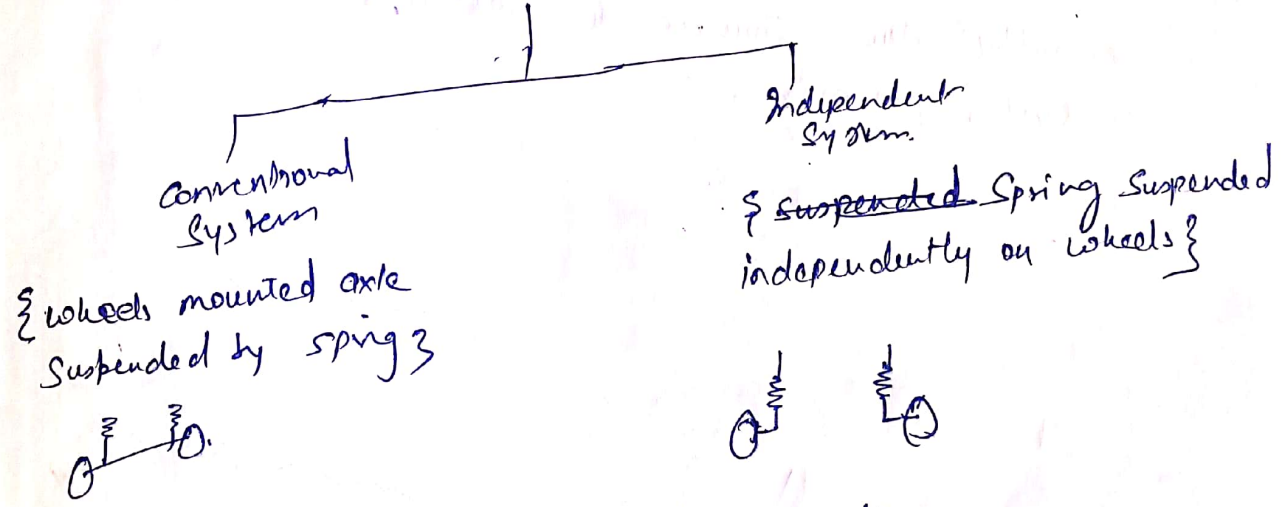 Conventional
System
{ wheels mounted axle
Suspended by spring }
Independent
System.
{ suspended Spring Suspended
independently on wheels }